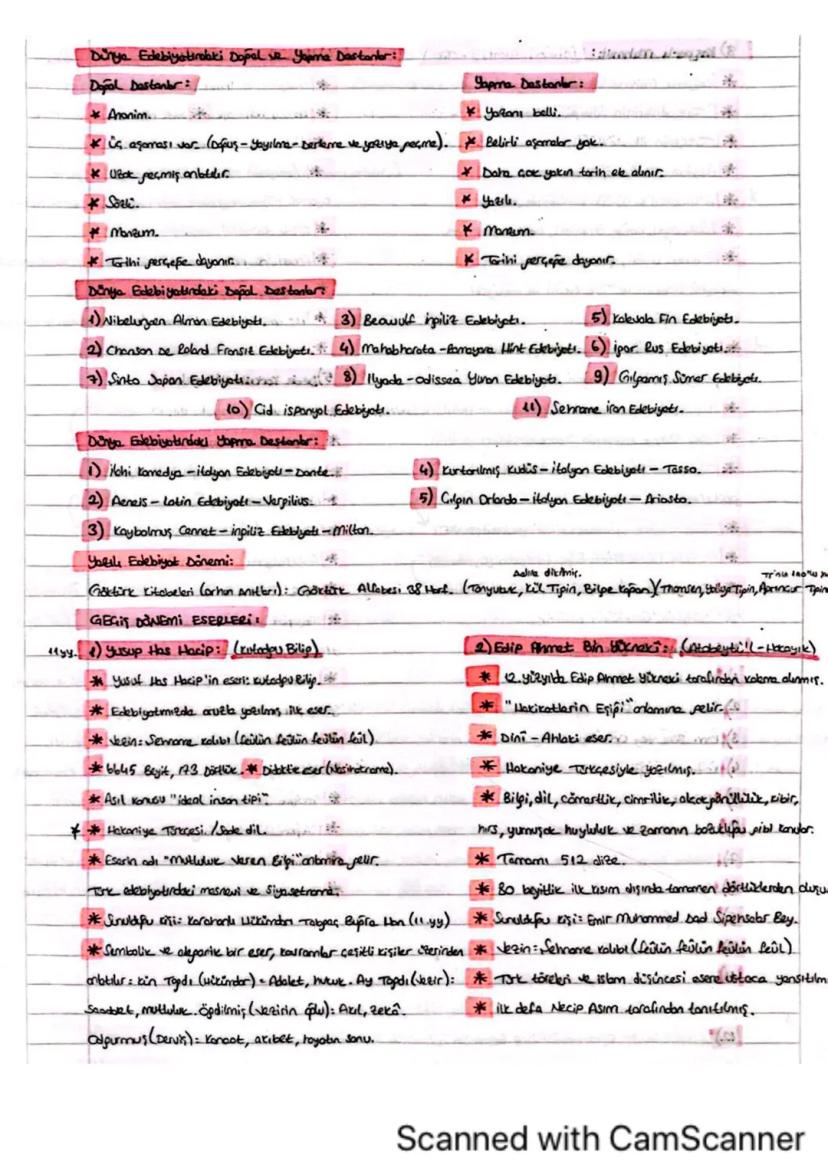 Dünya Edebiyatındaki Doğal ve Yapma Destanlar:
Doğal Destanlar:
* Anonim.
* Üç aşaması var. (Doğuş-Yayılma-Derleme ve yazıya geçme).
* Uzak geçmiş anlatılır.
* Sözlü.
* Manzum.
* Tarihi gerçeğe dayanır.
Yapma Destanlar:
* Yazanı belli.
* Belirli aşamalar yok.
* Daha çok yakın tarih ele alınır.
* Yazılı.
* Manzum.
* Tarihi gerçeğe dayanır.
Dünya Edebiyatındaki Doğal Destanlar:
1) Nibelungen Alman Edebiyatı. 3) Beowulf İngiliz Edebiyatı. 5) Kalevala Fin Edebiyatı.
2) Chanson De Roland Fransız Edebiyatı. 4) Mahabharata-Ramayana Hint Edebiyatı. 6) İgor Rus Edebiyatı.
7) Şinto Japon Edebiyatı. 8) İlyada-Odissea Yunan Edebiyatı. 9) Gılgamış Sümer Edebiyatı.
10) Cid İspanyol Edebiyatı. 11) Şehname İran Edebiyatı.
Dünya Edebiyatındaki Yapma Destanlar:
1) İlahi Komedya-İtalyan Edebiyatı-Dante. 4) Kurtarılmış Kudüs-İtalyan Edebiyatı-Tasso.
2) Aeneis-Latin Edebiyatı-Vergilius. 5) Çılgın Orlando-İtalyan Edebiyatı-Ariosto.
3) Kaybolmuş Cennet-İngiliz Edebiyatı-Milton.
Yazılı Edebiyat Dönemi:
Göktürk Kitabeleri (Orhun Anıtları): Göktürk Alfabesi 38 Harf. (Tonyukuk, Kül Tigin, Bilge Kağan) (Thomsen, Yoluğ Tigin,
GEÇİŞ DÖNEMİ ESERLERİ:
11yy. 1) Yusup Has Hacip: (Kutadgu Bilig)
* Yusuf Has Hacip'in eseri: Kutadgu Bilig.
* Edebiyatımızda aruzla yazılmış ilk eser.
* Vezin: Şehname kalıbı (feûlün feûlün feûlün feûl)
* 6645 Beyit, 173 Dörtlük. * Didaktik eser (Nasihatname).
* Asıl konusu "ideal insan tipi".
* * Hakaniye Türkçesi. /Sade dil.
* Eserin adı "Mutluluk Veren Bilgi" anlamına gelir.
Türk edebiyatındaki mesnevi ve siyasetname.
* Sunulduğu kişi: Karahanlı Hükümdarı Tabgaç Buğra Han (11.yy)
* Sembolik ve alegorik bir eser, kavramlar çeşitli kişiler üzerinden
anlatılır: Kün Togdı (Hükümdar) = Adalet, hukuk. Ay Togdı (Vezir):
Saadet, mutluluk. Ögdilmiş (Vezirin oğlu): Akıl, zekâ.
Odgurmuş (Derviş): Kanaat, akıbet, hayatın sonu.
2) Edip Ahmet Bin Yüknekî: (Atabetü'l-Hakayık)
* 12. yüzyılda Edip Ahmet Yükneki tarafından kaleme alınmış.
* "Hakikatlerin Eşiği" anlamına gelir.
* Dinî-Ahlaki eser.
* Hakaniye Türkçesiyle yazılmış.
* Bilgi, dil, cömertlik, cimrilik, alçakgönüllülük, kibir,
hırs, yumuşak huyluluk ve zamanın bozukluğu gibi konular.
* Tamamı 512 dize.
* 80 beyitlik ilk kısım dışında tamamen dörtlüklerden oluşu
* Sunulduğu kişi: Emir Muhammed Dad Sipehsalar Bey.
* Vezin: Şehname kalıbı (feûlün feûlün feûlün feûl)
* Türk töreleri ve islam düşüncesi esere ustaca yansıtılm
* İlk defa Necip Asım tarafından tanıtılmış.
Scanned with CamScanner